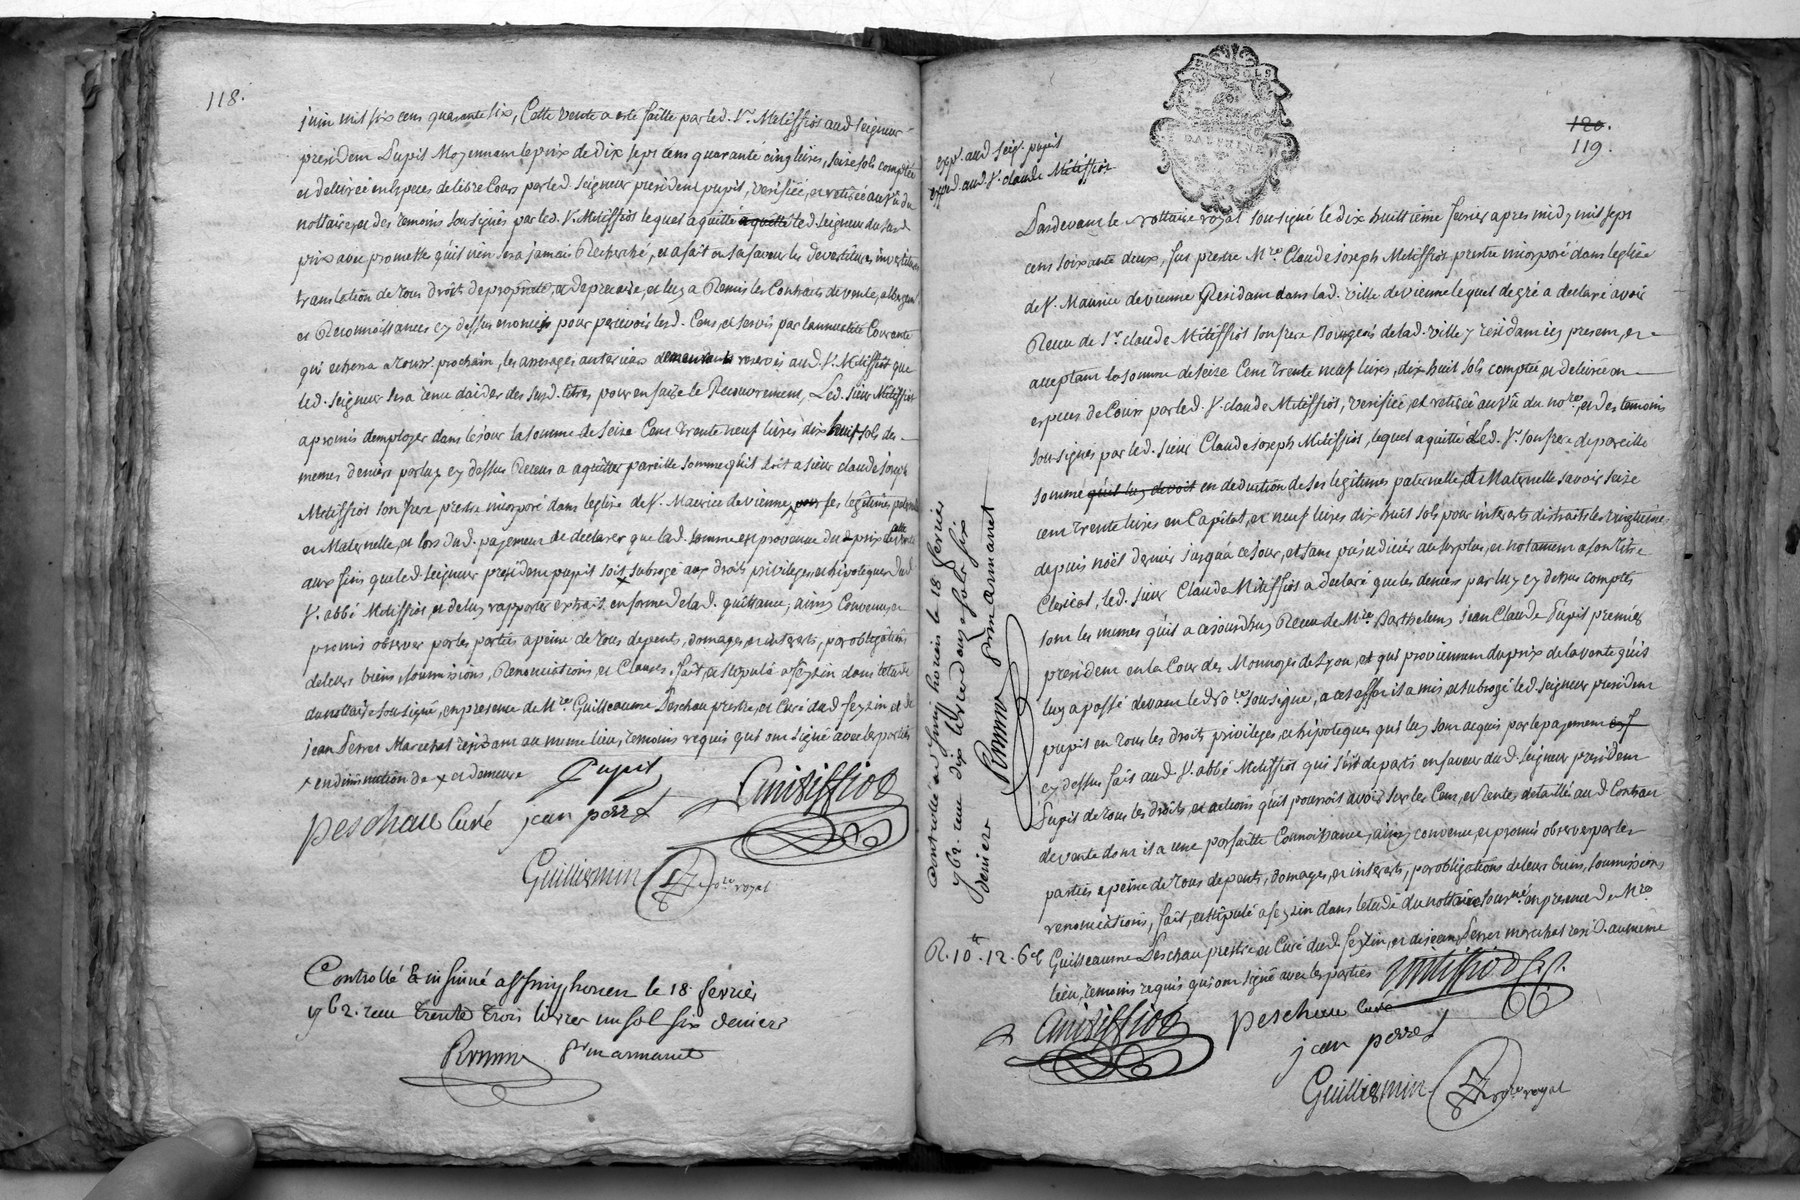 118.
juin mil six cens quarante six, Cette vente a esté faitte par led. Sr. Mitiffiot aud. seigneur
president Pupil Moyennant le prix de dix sept cens quarante cinq livres, seize sols comptée
et delivrée en especes de libre Cours par led. seigneur president pupil, verifiée, et retirée au vû du
nottaire, et des temoins soussignés par led. Sr. Mitiffiot lequel a quitté a quitté led. seigneur dud.
prix avec promesse qu'il n'en sera jamais Recherché, et a fait en sa faveur les devestitures investitures
translation de tous droits de proprieté, et de precaire, et luy a Remis les Contracts de vente, albergement
et Reconnoissances cy dessus enoncés pour percevoir lesd. Cens, et servis par l'annuelité Courante
qui echerra a touss. prochain, les arrerages anterieurs demeurants reservés aud. Sr. Mitiffiot que
led. seigneur sera tenu d'aider des susd. titres pour en faire le Recouvrement, Led. sieur Mitiffiot
a promis d'employer dans le jour la somme de seize Cens trente neuf livres dix huit sols des
memes deniers par luy cy dessus Receus a aquitter pareille somme qu'il doit a sieur claude joseph
Mitiffiot son frere prestre incorporé dans l'eglise de St. Maurice de vienne, pour ses legitimes paternelle
et Maternelle, et lors dud. payement de declarer que lad. somme est provenue du prix de cette vente
aux fins que led. seigneur president pupil soit subrogé aux droits privileges et hipoteques dud.
Sr. abbé Mitiffiot, et de luy rapporter extrait en forme de lad. quittance, ainsy Convenu, et
promis observer par les parties a peine de tous depents, domages, et interets, par obligations
de leurs biens, soumissions, Renonciations, et Clauses. fait, et stipulé a feyzin dans l'etude
du nottaire soussigné, en presence de Mre. Guilleaume Peschau prestre, et Curé dud. feyzin, et de
jean Perret Marechal residant au meme lieu, temoins requis qui ont signé avec les parties
x en diminution de x et demeure
Pupil
Peschau Curé
jean perret
C mitiffiot
Guillermin
nore royal
Controllé & insinué a St simphorien le 18 fevrier
1762. receu trente trois livres un sol six deniers
Romin pr m armanet
expé. aud. seigr. pupil
expé. aud. Sr. claude Mitiffiot
120.
119.
Pardevant le nottaire royal soussigné le dix huittieme fevrier apres midy mil sept
cens soixante deux, fut present Mre. Claude joseph Mitiffiot prestre incorporé dans l'eglise
de St. Maurice de vienne Residant dans lad. ville de vienne lequel de gré a declaré avoir
Receu de Sr. claude Mitiffiot son frere Bourgeois de lad. ville y residant icy present, et
acceptant la somme de seize Cens trente neuf livres, dix huit sols comptée et delivrée en
especes de Cours par led. Sr. claude Mitiffiot, verifiée, et retirée au vû du nore, et des temoins
soussignés par led. sieur Claude joseph Mitiffiot, lequel a quitté Led. Sr. son frere de pareille
somme qu'il luy devoit en deduction de ses legitimes paternelle, et Maternelle savoir seize
cent trente livres en Capital, et neuf livres dix huit sols pour interets distraits les vingtiemes
depuis noël dernier jusqu'a ce jour, et sans prejudicier au surplus, et notament a son titre
Clerical, led. sieur Claude Mitiffiot a declaré que les deniers par luy cy dessus comptés
sont les memes qu'il a cejourdhuy Receu de Mre. Barthelemy jean Claude Pupil premier
president en la Cour des Monnoyes de Lyon, et qui proviennent du prix de la vente qu'il
luy a passé devant le no.re soussigné, a cet effet il a mis et subrogé led. seigneur president
pupil en tous les droits, privileges, et hipoteques qui luy sont acquis par le payement
cy dessus fait aud. Sr. abbé Mitiffiot qui s'est departi en faveur dud. seigneur president
Pupil de tous les droits, et actions qu'il pourroit avoir sur les Cens, et rentes, detaillés aud. Contrat
de vente dont il a une parfaitte Connoissance, ainsy convenu, et promis observer par les
parties a peine de tous depents, domages, et interets, par obligations de leurs biens, soumissions
renonciations, fait, et stipulé a feyzin dans l'etude du nottaire soussigné en presence de Mre.
Guilleaume Peschau prestre et Curé dud. feyzin, et de jean Perret marechal resid. au meme
lieu, temoins requis qui ont signé avec les parties
Mitiffiot
C mitiffiot
Peschau Curé
jean perret
Guillermin
nore royal
controllé a St simphorien le 18 fevrier
1762. receu dix livres douze sols six
deniers Romin pr m armanet
R. 10 ₶ 12. 6 d